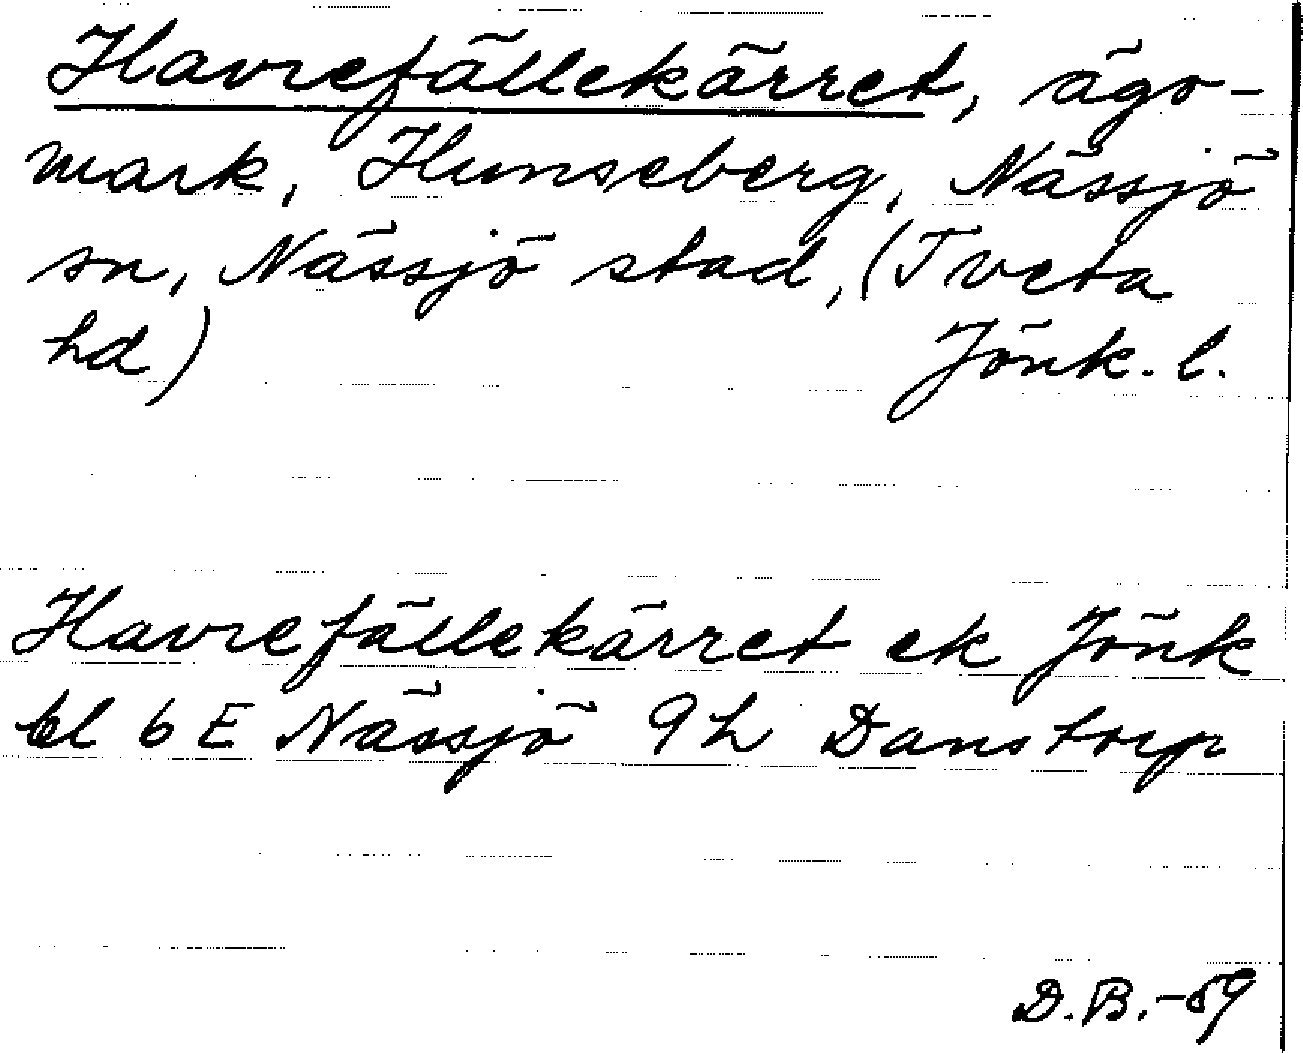 Havrefällekärret, ägo-
mark, Hunseberg, Nässjö
sn, Nässjö stad, (Tveta
hd) Jönk. l.
Havrefällekärret ek Jönk
bl 6 E Nässjö 9h Danstorp
D.B.-59